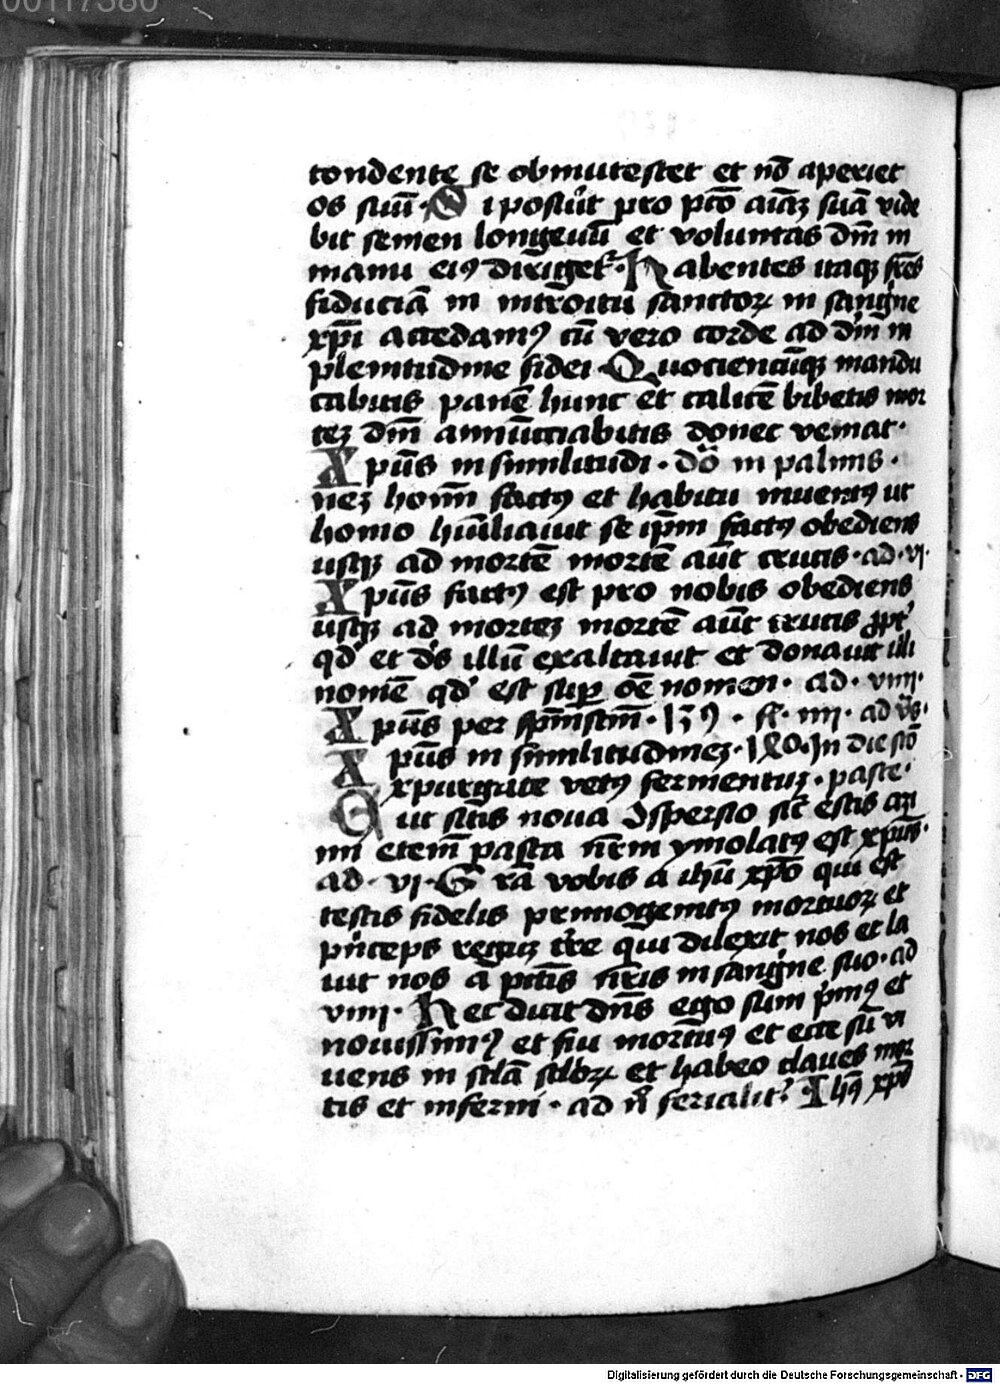 00117380
tondente se obmutescet et nō aperiet
os suū · Si posūit pro pccō aīaʒ suā vide
bit semen longeuū et voluntas dn̄i in
manu eiꝰ dirigetᷣ · Habentes itaqʒ fr̄es
fiduciā in introitu sanctoꝝ in sangˈne
xp̄i accedamꝰ cū vero corde ad dn̄m in
plenitudine fidei · Quociencūqʒ mandu
cabitis panē hunc et calicē bibetis mor
teʒ dn̄i annūcciabitis donec veniat ·
Xpūs in similitudi · dō in palmis ·
neʒ homīn factꝰ et habitu inuentꝰ ut
homo hūiliauit se ip̄m factꝰ obediens
usqʒ ad mortē mortē aūt crucis · ad · vi ·
Xpūs factꝰ est pro nobis obediens
usqʒ ad morteʒ mortē aūt crucis ꝓptˀ
qd' et d's illū exaltauit et donauit illi
nomē qd' est suꝑ oē nomen · ad · viiii ·
Xpūs per sp̄m sc̄m · 139 · fˈ · iiii · ad v̄s ·
Xpūs in similitudineʒ · 140 · In die scō
Expurgate vetꝰ fermentuʒ · pasce ·
ut sitis noua 2spersio sic̄ estis aʒi
mi etem̄ pasca nr̄m ymolatꝰ est xpūs ·
ad · vi · Grā vobis a ihū xp̄o qui est
testis fidelis primogenitꝰ mortuoꝝ et
pˈnceps regūʒ tr̄e qūi dilexit nos et la
uit nos a pcc̄is nr̄is in sangˈne suo · ad
viiii · Hec dicit dn̄s ego sum pˈmꝰ et
nouissimꝰ et fui mortūꝰ et ecce sū vi
uens in sclā scloꝝ et habeo claues mor
tis et inferni · ad n̄ ferialitˀ · Ihꝰ xpō
Digitalisierung gefördert durch die Deutsche Forschungsgemeinschaft - DFG